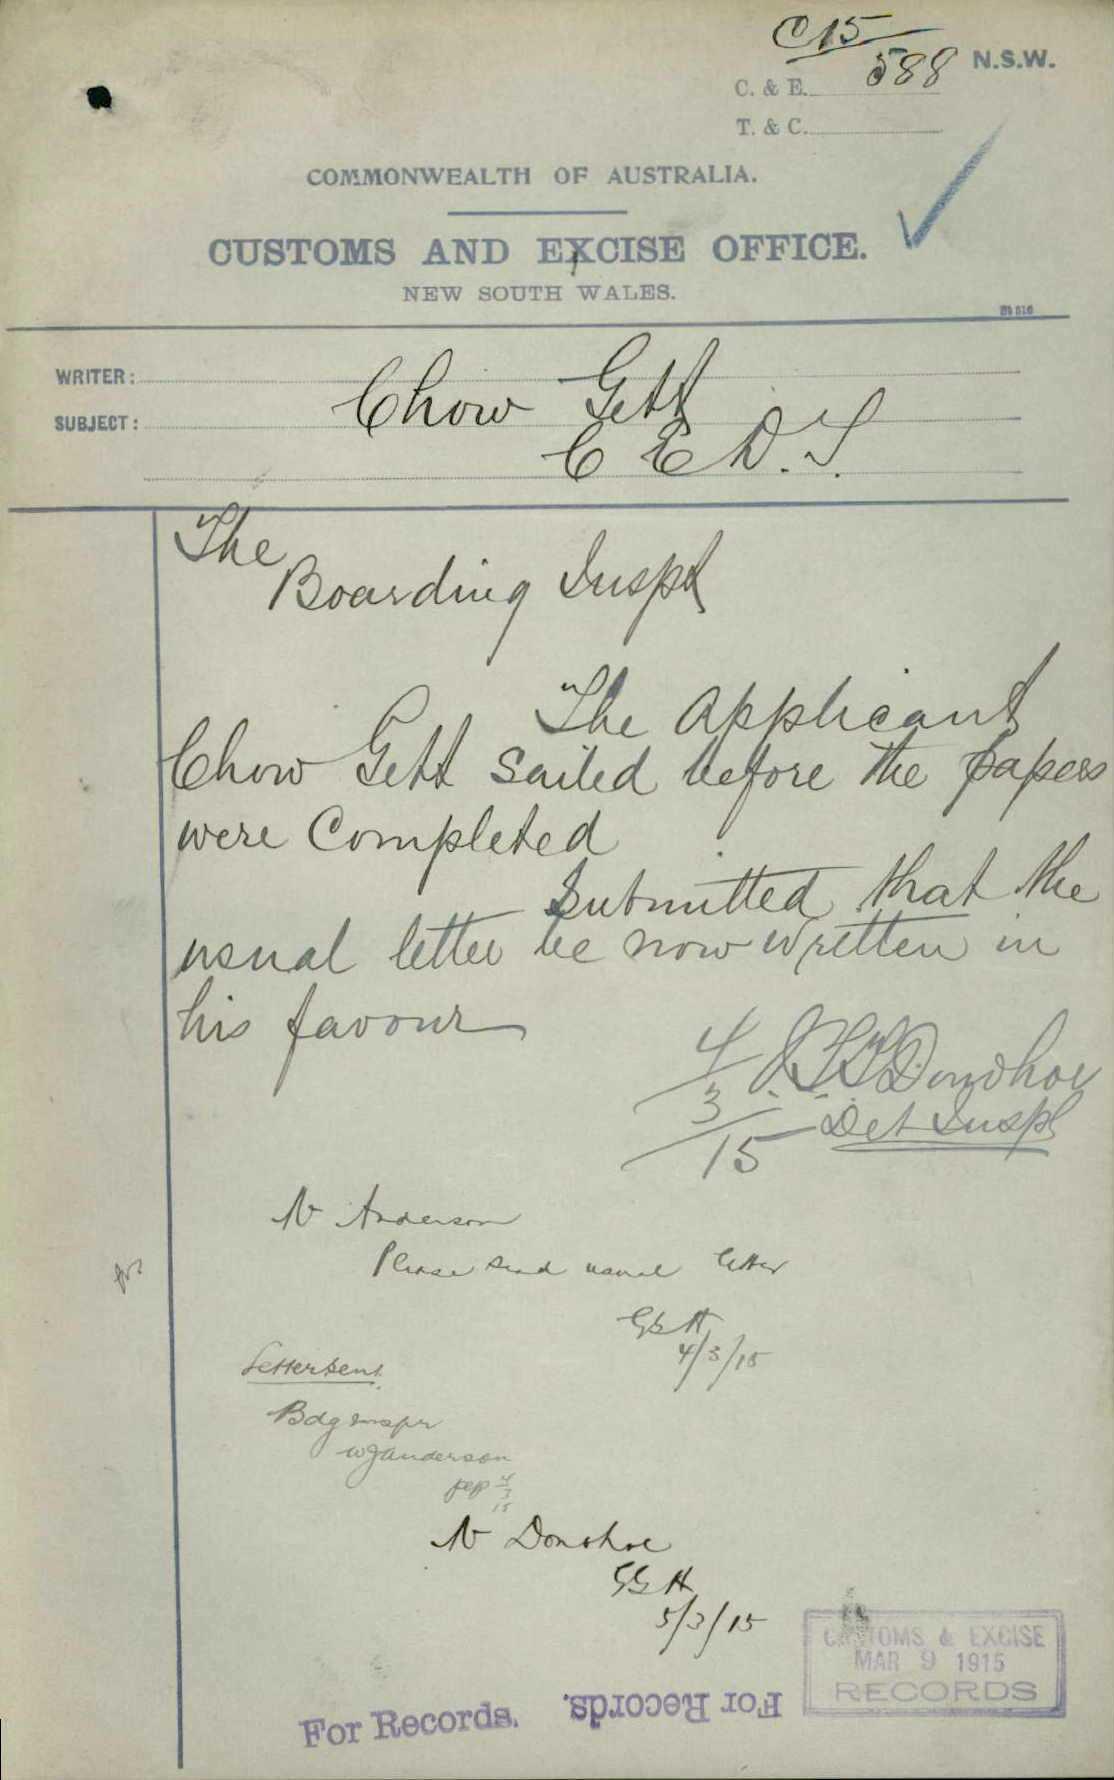 C15
588 N.S.W.
C. & E.
T. & C.
COMMONWEALTH OF AUSTRALIA.
CUSTOMS AND EXCISE OFFICE.
NEW SOUTH WALES.
WRITER:
SUBJECT:
Chow Gett
C E D. T.
The
Boarding Inspt
The Applicant
Chow Gett Sailed before the papers
were Completed
Submitted that the
usual letter be now written in
his favour
4/3/15
Donohoe
Det Inspt
Mr Anderson
Please send usual letter
4/3/15
Letter sent
Bdg Inspr
WJ Anderson
4/3/15
Mr Donohoe
5/3/15
CUSTOMS & EXCISE
MAR 9 1915
RECORDS
For Records.
For Records.